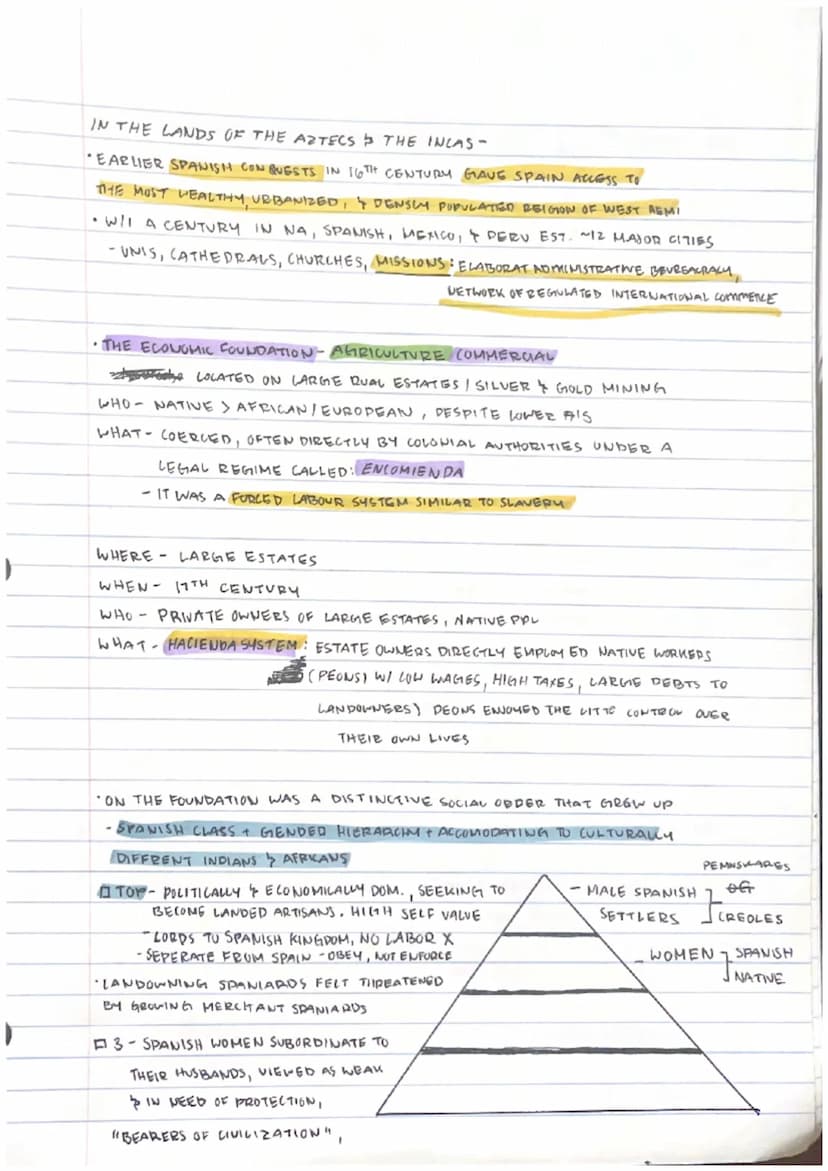 IN THE LANDS OF THE AZTECS & THE INCAS -
• EARLIER SPANISH CONQUESTS IN 16TH CENTURY GAVE SPAIN ACCESS TO
THE MOST WEALTHY, URBANIZED, & DENSLY POPULATED REIGION OF WEST HEMI
• W/I A CENTURY IN NA, SPANISH, MEXICO, & PERU EST. ~12 MAJOR CITIES
- UNIS, CATHEDRALS, CHURCHES, MISSIONS: ELABORAT ADMINISTRATIVE BEUREACRACY,
NETWORK OF REGULATED INTERNATIONAL COMMERCE
• THE ECONOMIC FOUNDATION - AGRICULTURE COMMERCIAL
LOCATED ON LARGE RUAL ESTATES / SILVER & GOLD MINING
WHO - NATIVE > AFRICAN/EUROPEAN, DESPITE LOWER #'S
WHAT - COERCED, OFTEN DIRECTLY BY COLONIAL AUTHORITIES UNDER A
LEGAL REGIME CALLED: ENCOMIENDA
- IT WAS A FORCED LABOUR SYSTEM SIMILAR TO SLAVERY
WHERE - LARGE ESTATES
WHEN - 17TH CENTURY
WHO - PRIVATE OWNERS OF LARGE ESTATES, NATIVE PPL
WHAT - HACIENDA SYSTEM: ESTATE OWNERS DIRECTLY EMPLOYED NATIVE WORKERS
(PEONS) W/ LOW WAGES, HIGH TAXES, LARGE DEBTS TO
LANDOWNERS) PEONS ENJOYED THE CONTROL OVER
THEIR OWN LIVES
• ON THE FOUNDATION WAS A DISTINCTIVE SOCIAL ORDER THAT GREW UP
- SPANISH CLASS + GENDED HIERARCHY + ACCOMODATING TO CULTURALLY
DIFFRENT INDIANS & AFRICANS
TOP - POLITICALLY & ECONOMICALLY DOM., SEEKING TO
BECOME LANDED ARTISANS. HIGH SELF VALUE
- LORDS TO SPANISH KINGDOM, NO LABOR X
- SEPERATE FROM SPAIN - OBEY, NOT ENFORCE
• LANDOWNING SPANIARDS FELT THREATENED
BY GROWING MERCHANT SPANIARDS
3 - SPANISH WOMEN SUBORDINATE TO
THEIR HUSBANDS, VIEWED AS WEAK
& IN NEED OF PROTECTION,
"BEARERS OF CIVILIZATION",
- MALE SPANISH
SETTLERS
OG
CREOLES
- WOMEN
SPANISH
NATIVE